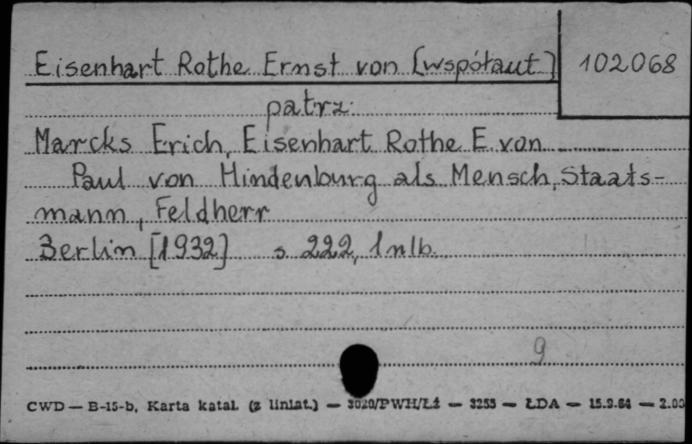 Eisenhart Rothe Ernst von [współaut] 102068
patrz:
Marcks Erich, Eisenhart Rothe E. von
Paul von Hindenburg als Mensch, Staats-
mann, Feldherr
Berlin [1932] s 222, 1 nlb.
9
CWD — B-15-b, Karta katal. (z liniat.) — 3020/PWH/Łż — 3255 — ŁDA — 15.9.64 — 2.00